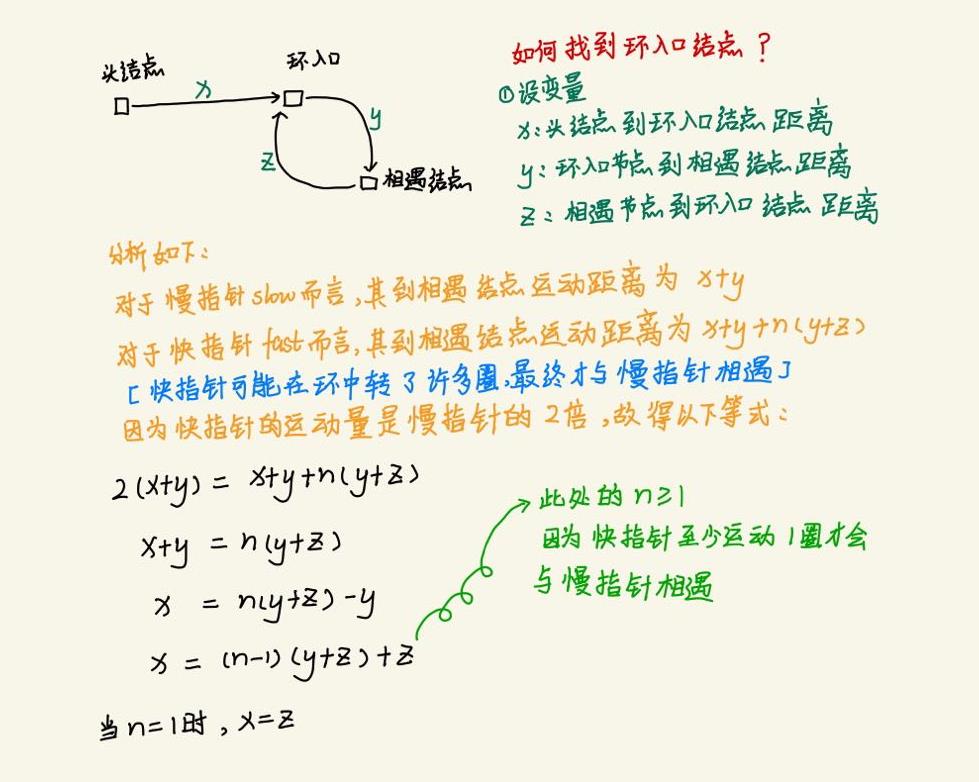 头结点
环入口
x
y
z
相遇结点
如何找到环入口结点？
①设变量
x:头结点到环入口结点距离
y:环入口节点到相遇结点距离
z:相遇节点到环入口结点距离
分析如下:
对于慢指针slow而言,其到相遇结点运动距离为 x+y
对于快指针fast而言,其到相遇结点运动距离为x+y+n(y+z)
[快指针可能在环中转了许多圈,最终才与慢指针相遇]
因为快指针的运动量是慢指针的2倍,故得以下等式:
2(x+y) = x+y+n(y+z)
x+y = n(y+z)
x = n(y+z)-y
x = (n-1)(y+z)+z
当n=1时,x=z
此处的n≥1
因为快指针至少运动1圈才会
与慢指针相遇